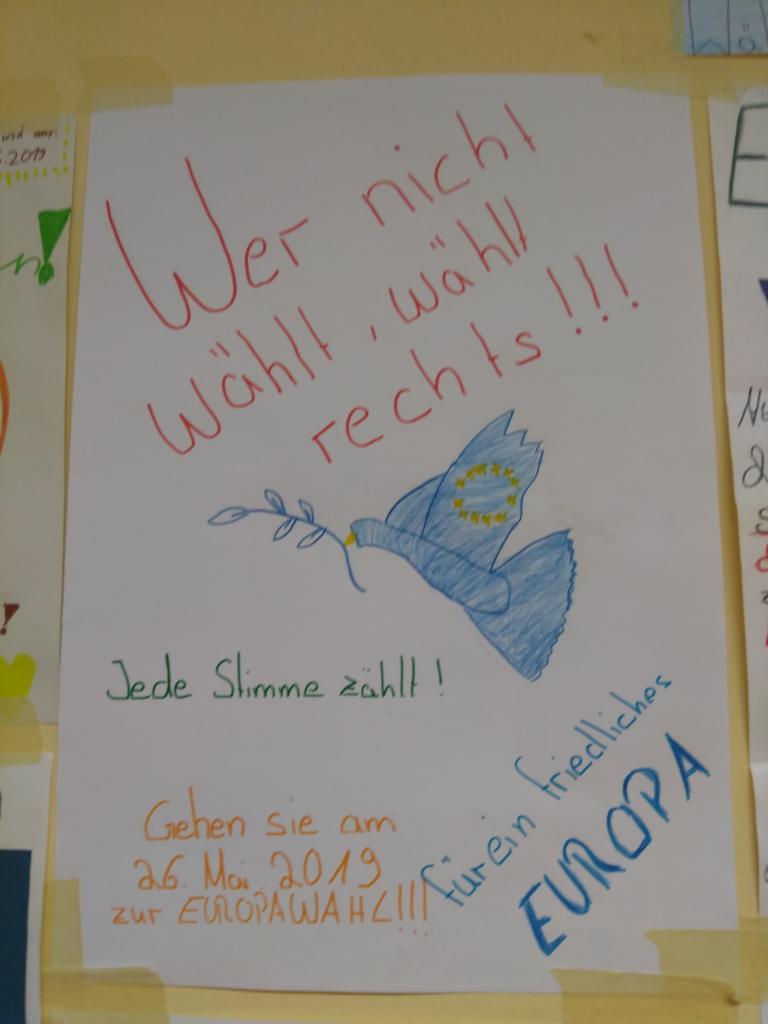 Wer nicht
wählt, wählt
rechts!!!
Jede Stimme zählt!
für ein friedliches
EUROPA
Gehen sie am
26. Mai 2019
zur EUROPAWAHL!!!